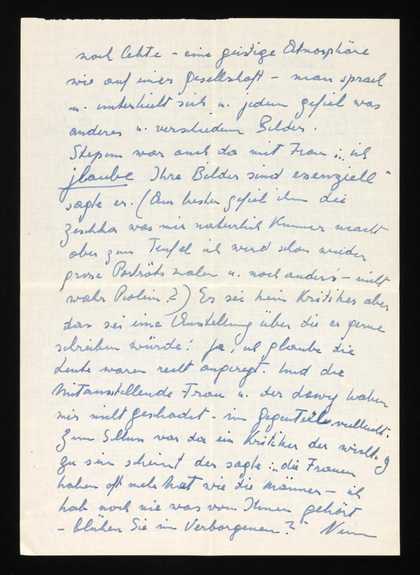 noch lebte – eine geistige Atmosphäre
wie auf einer Gesellschaft – man sprach
u. unterhielt sich u. jedem gefiel was
anderes u. verschiedene Bilder.
war auch da mit Frau: ich
glaube Ihre Bilder sind essenziell"
sagte er. (Am besten gefiel ihm die
was mir natürlich Kummer macht
aber zum Teufel ich werd schon wieder
grosse Porträts malen u. noch anders – nicht
wahr ?) Er sei kein Kritiker aber
das sei eine Ausstellung über die er gerne
schreiben würde: ja, ich glaube die
Leute waren recht angeregt. Und die
Mitausstellende Frau u. der haben
mir nicht geschadet – im Gegenteil vielleicht.
Zum Schluss war da ein Kritiker der wirkl.
zu sein scheint der sagte: „die Frauen
haben oft mehr wie die Männer – ich
hab noch nie was von Ihnen gehört
– blühen Sie im Verborgenen?"